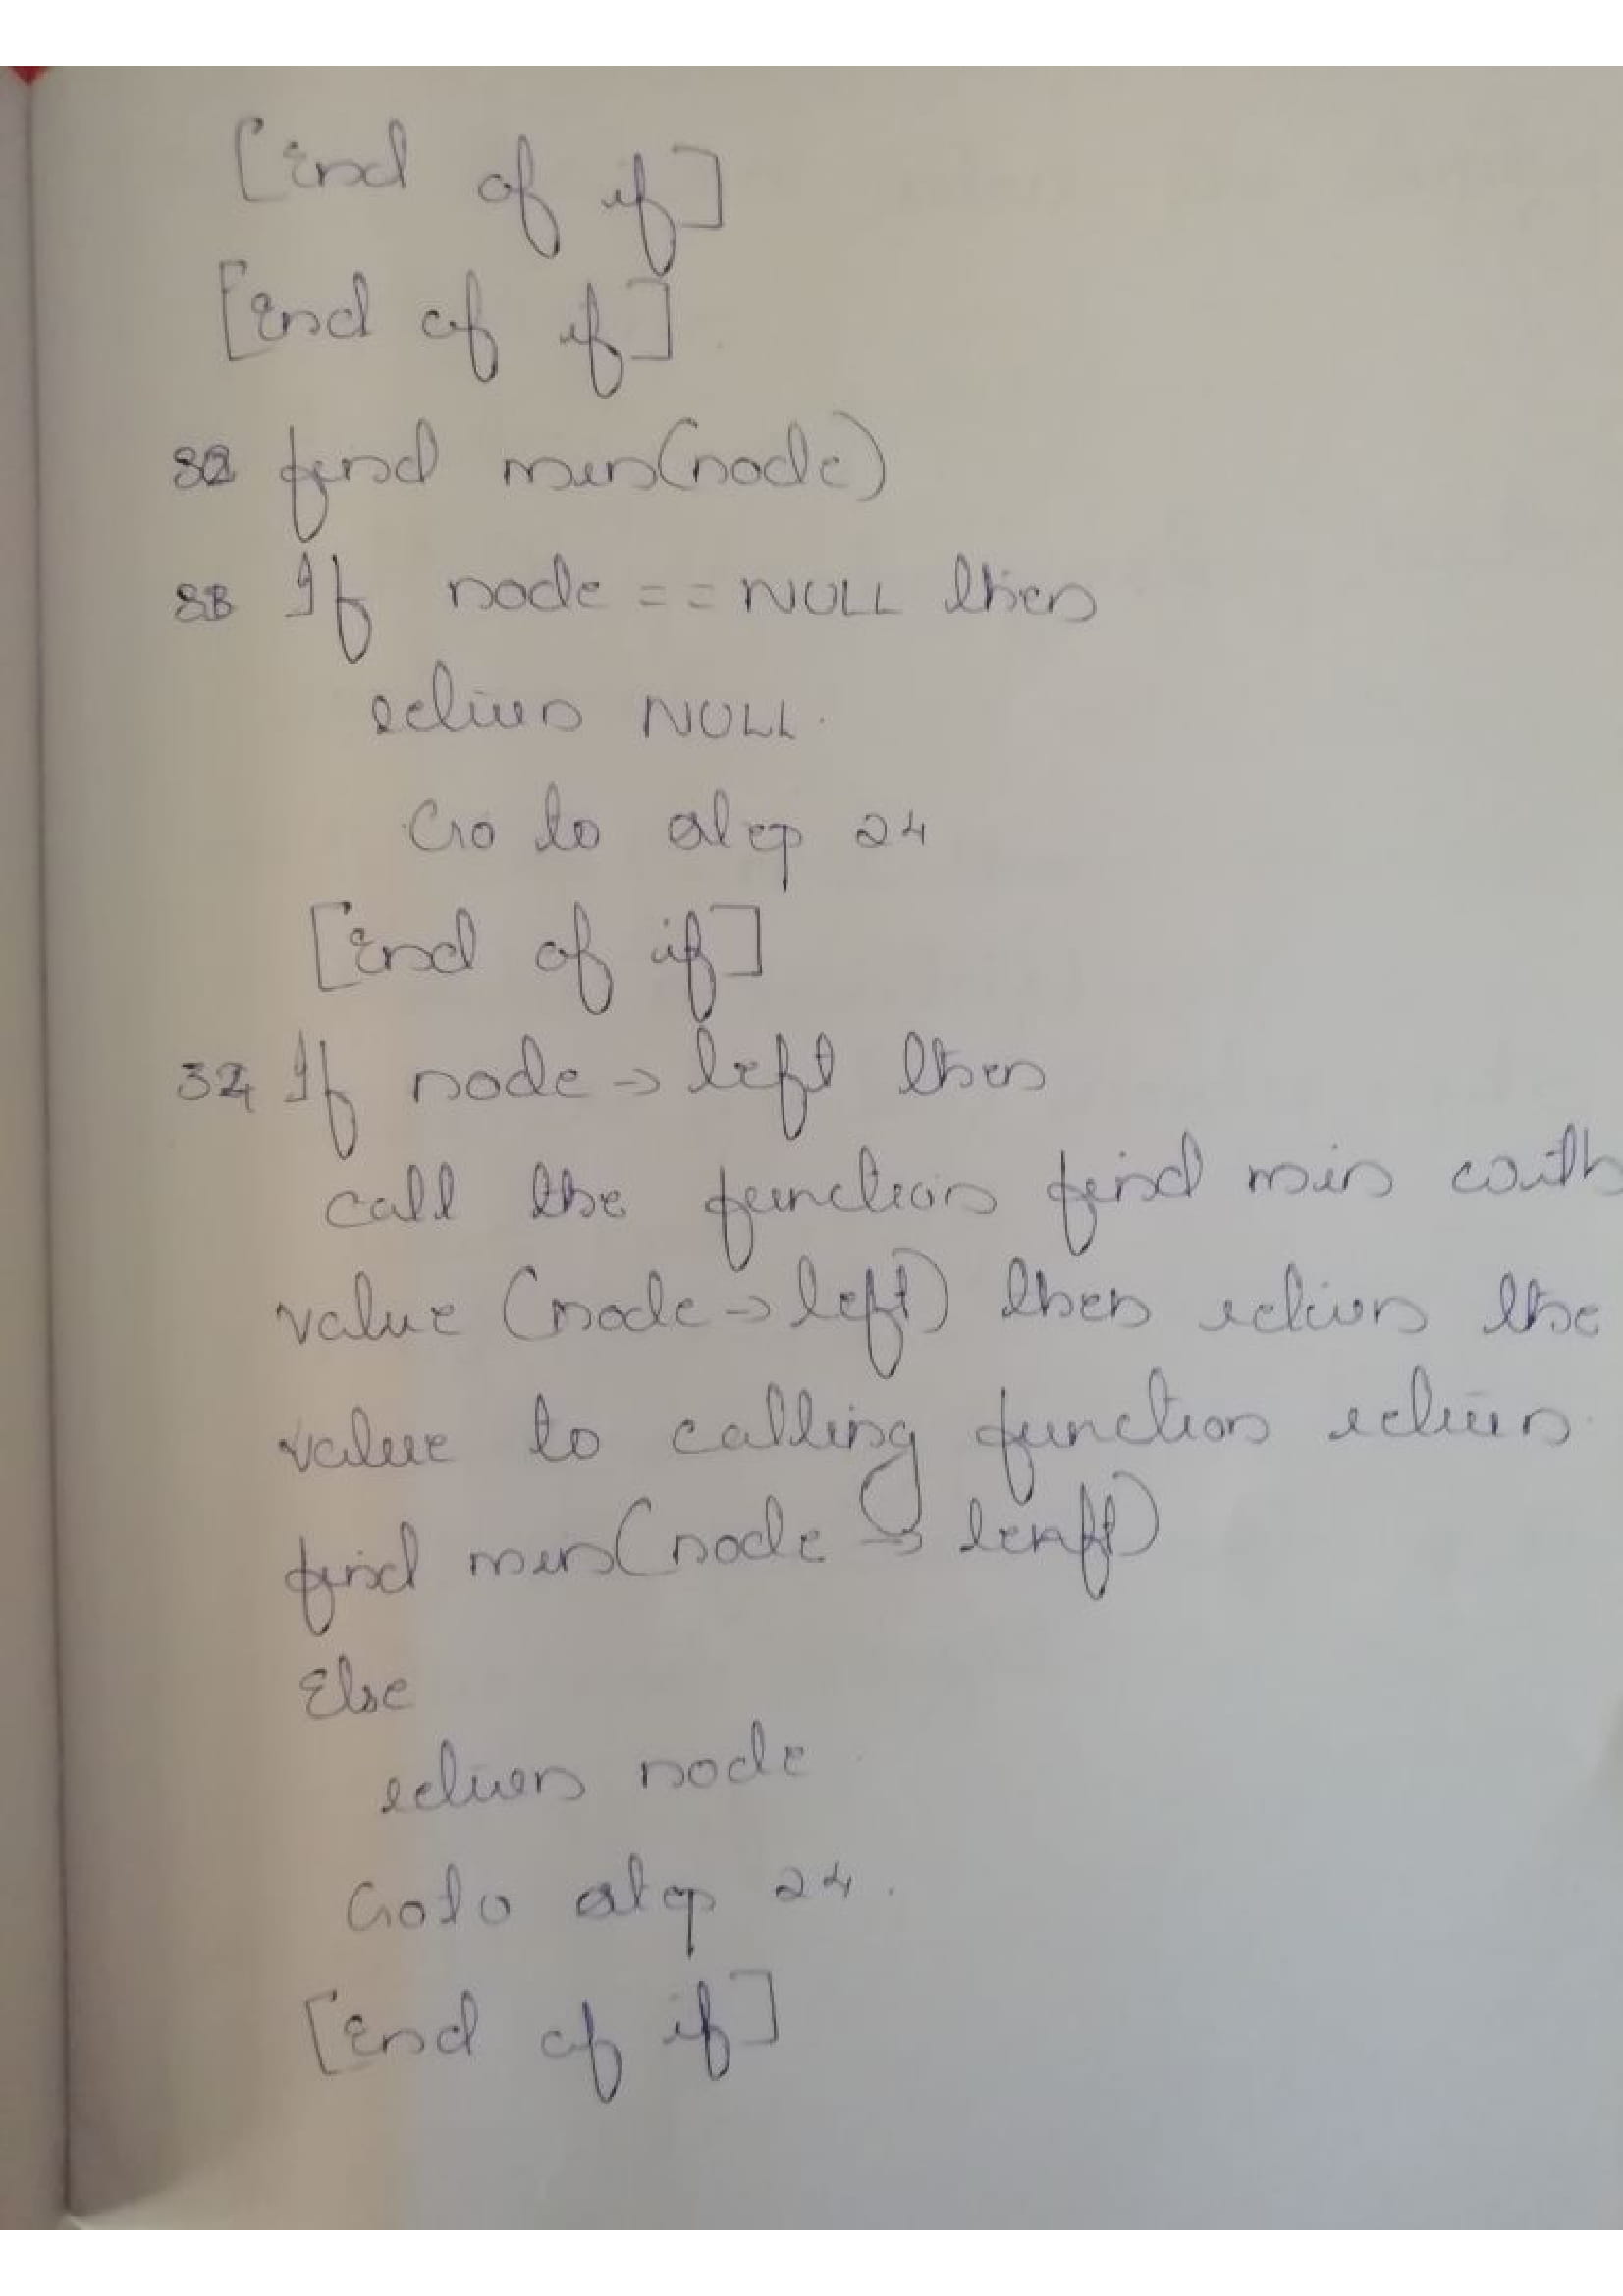 [End of if]
[End of if]
32 find min(node)
33 If node == NULL then
return NULL.
Go to step 24
[End of if]
34 If node → left then
call the function find min with
value (node → left) then return the
value to calling function return
find min(node → left)
Else
return node
Goto step 24.
[End of if]